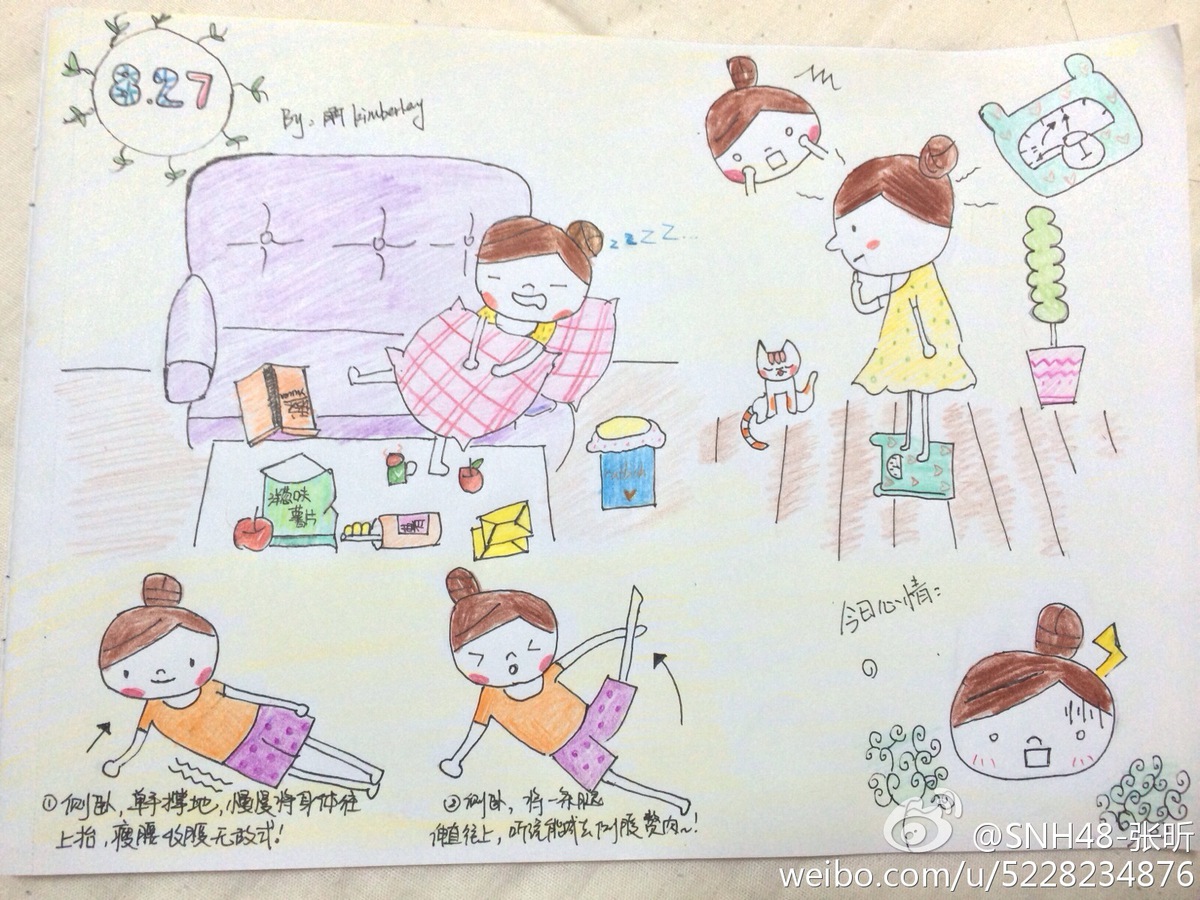 8.27
By: 昕kimberley
zzzz...
洋葱味
薯片
今日心情:
①侧卧,单手撑地,慢慢将身体往
上抬,瘦腰收腹无敌式!
②侧卧,将一条腿
伸直往上,听说能减去侧腹赘肉~!
@SNH48-张昕
weibo.com/u/5228234876